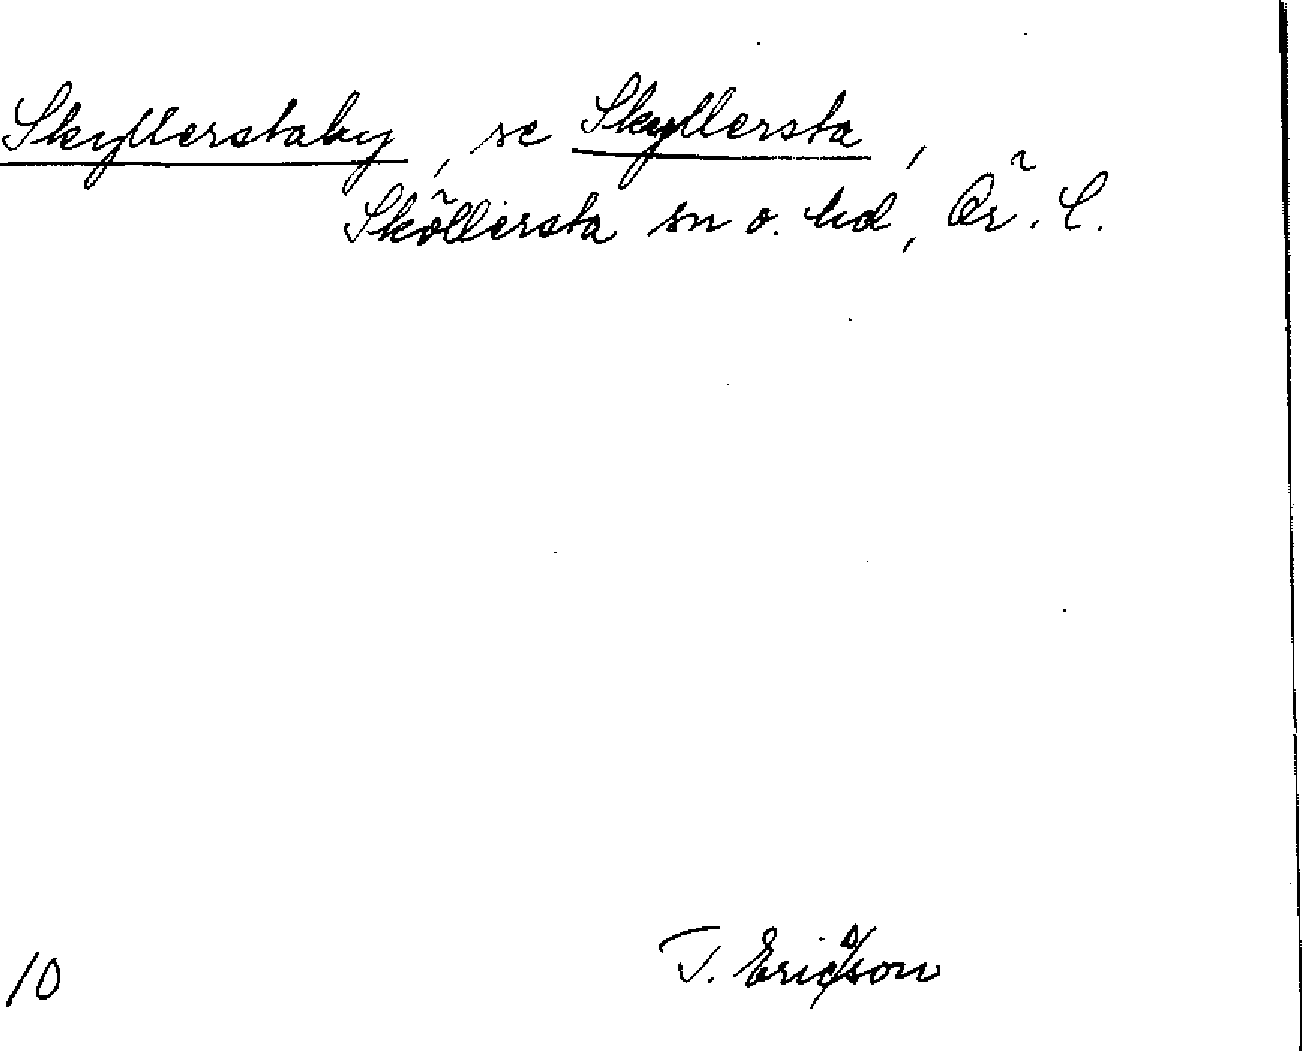 Skyllerstaby, se Skyllersta,
Sköllersta sn o. hd, Ör. l.
10 T. Ericsson